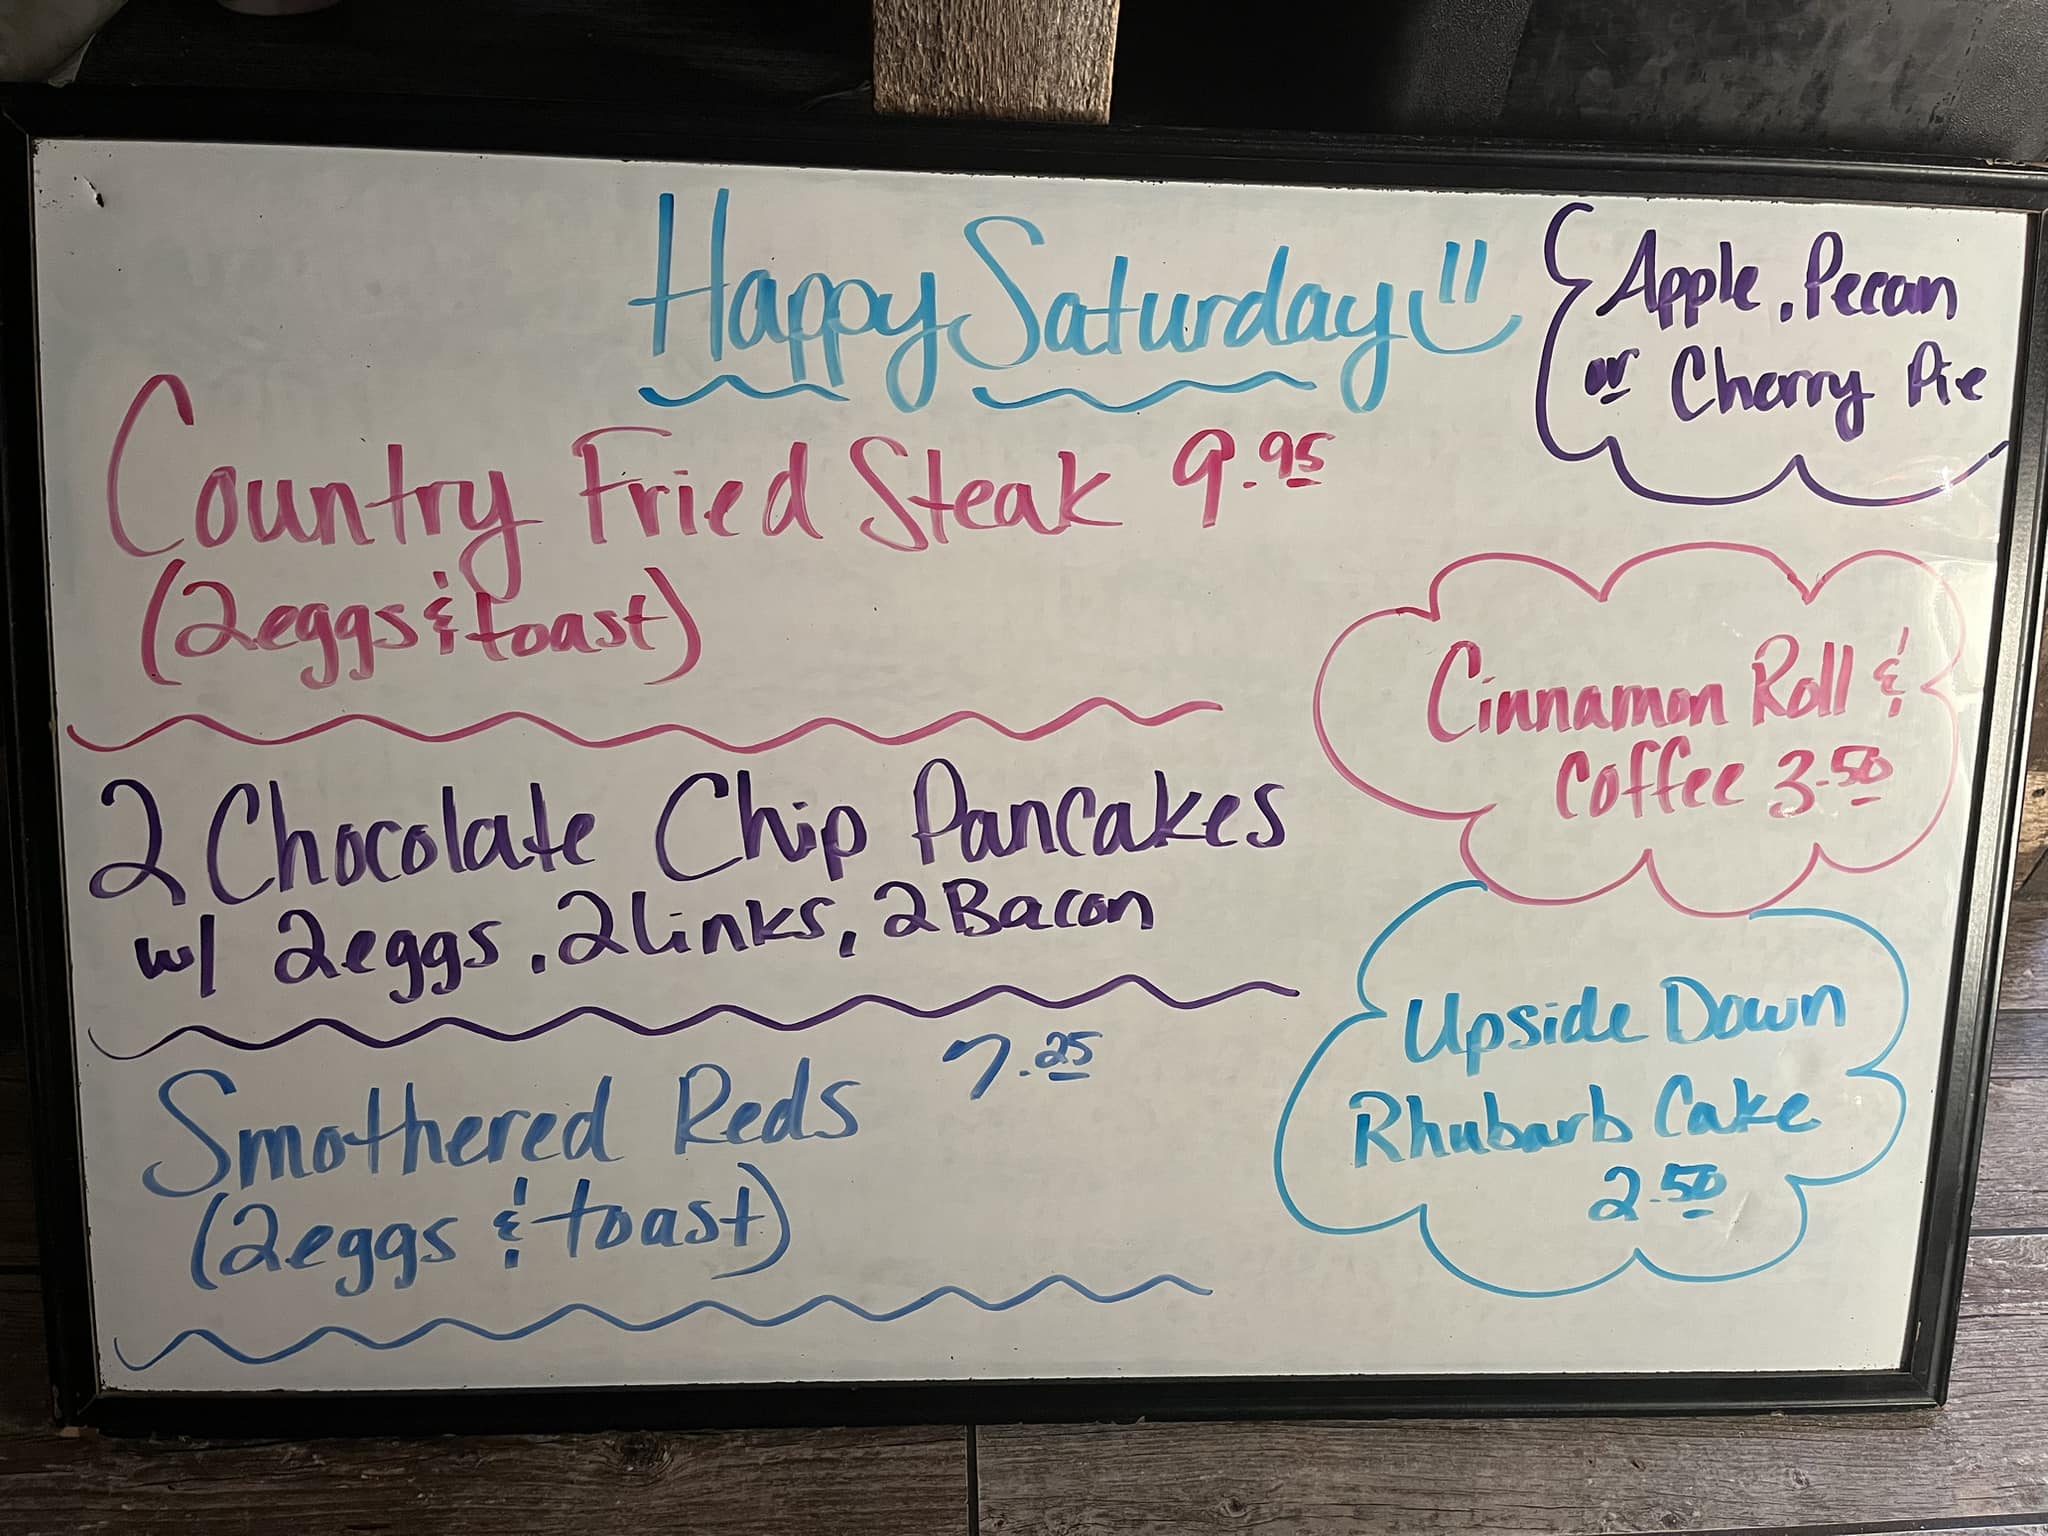 Happy Saturday
Apple, Pecan
or Cherry Pie
Country Fried Steak 9.95
(2eggs & toast)
Cinnamon Roll &
Coffee 3.50
2 Chocolate Chip Pancakes
w/ 2eggs, 2links, 2Bacon
Smothered Reds 7.25
(2eggs & toast)
Upside Down
Rhubarb Cake
2.50